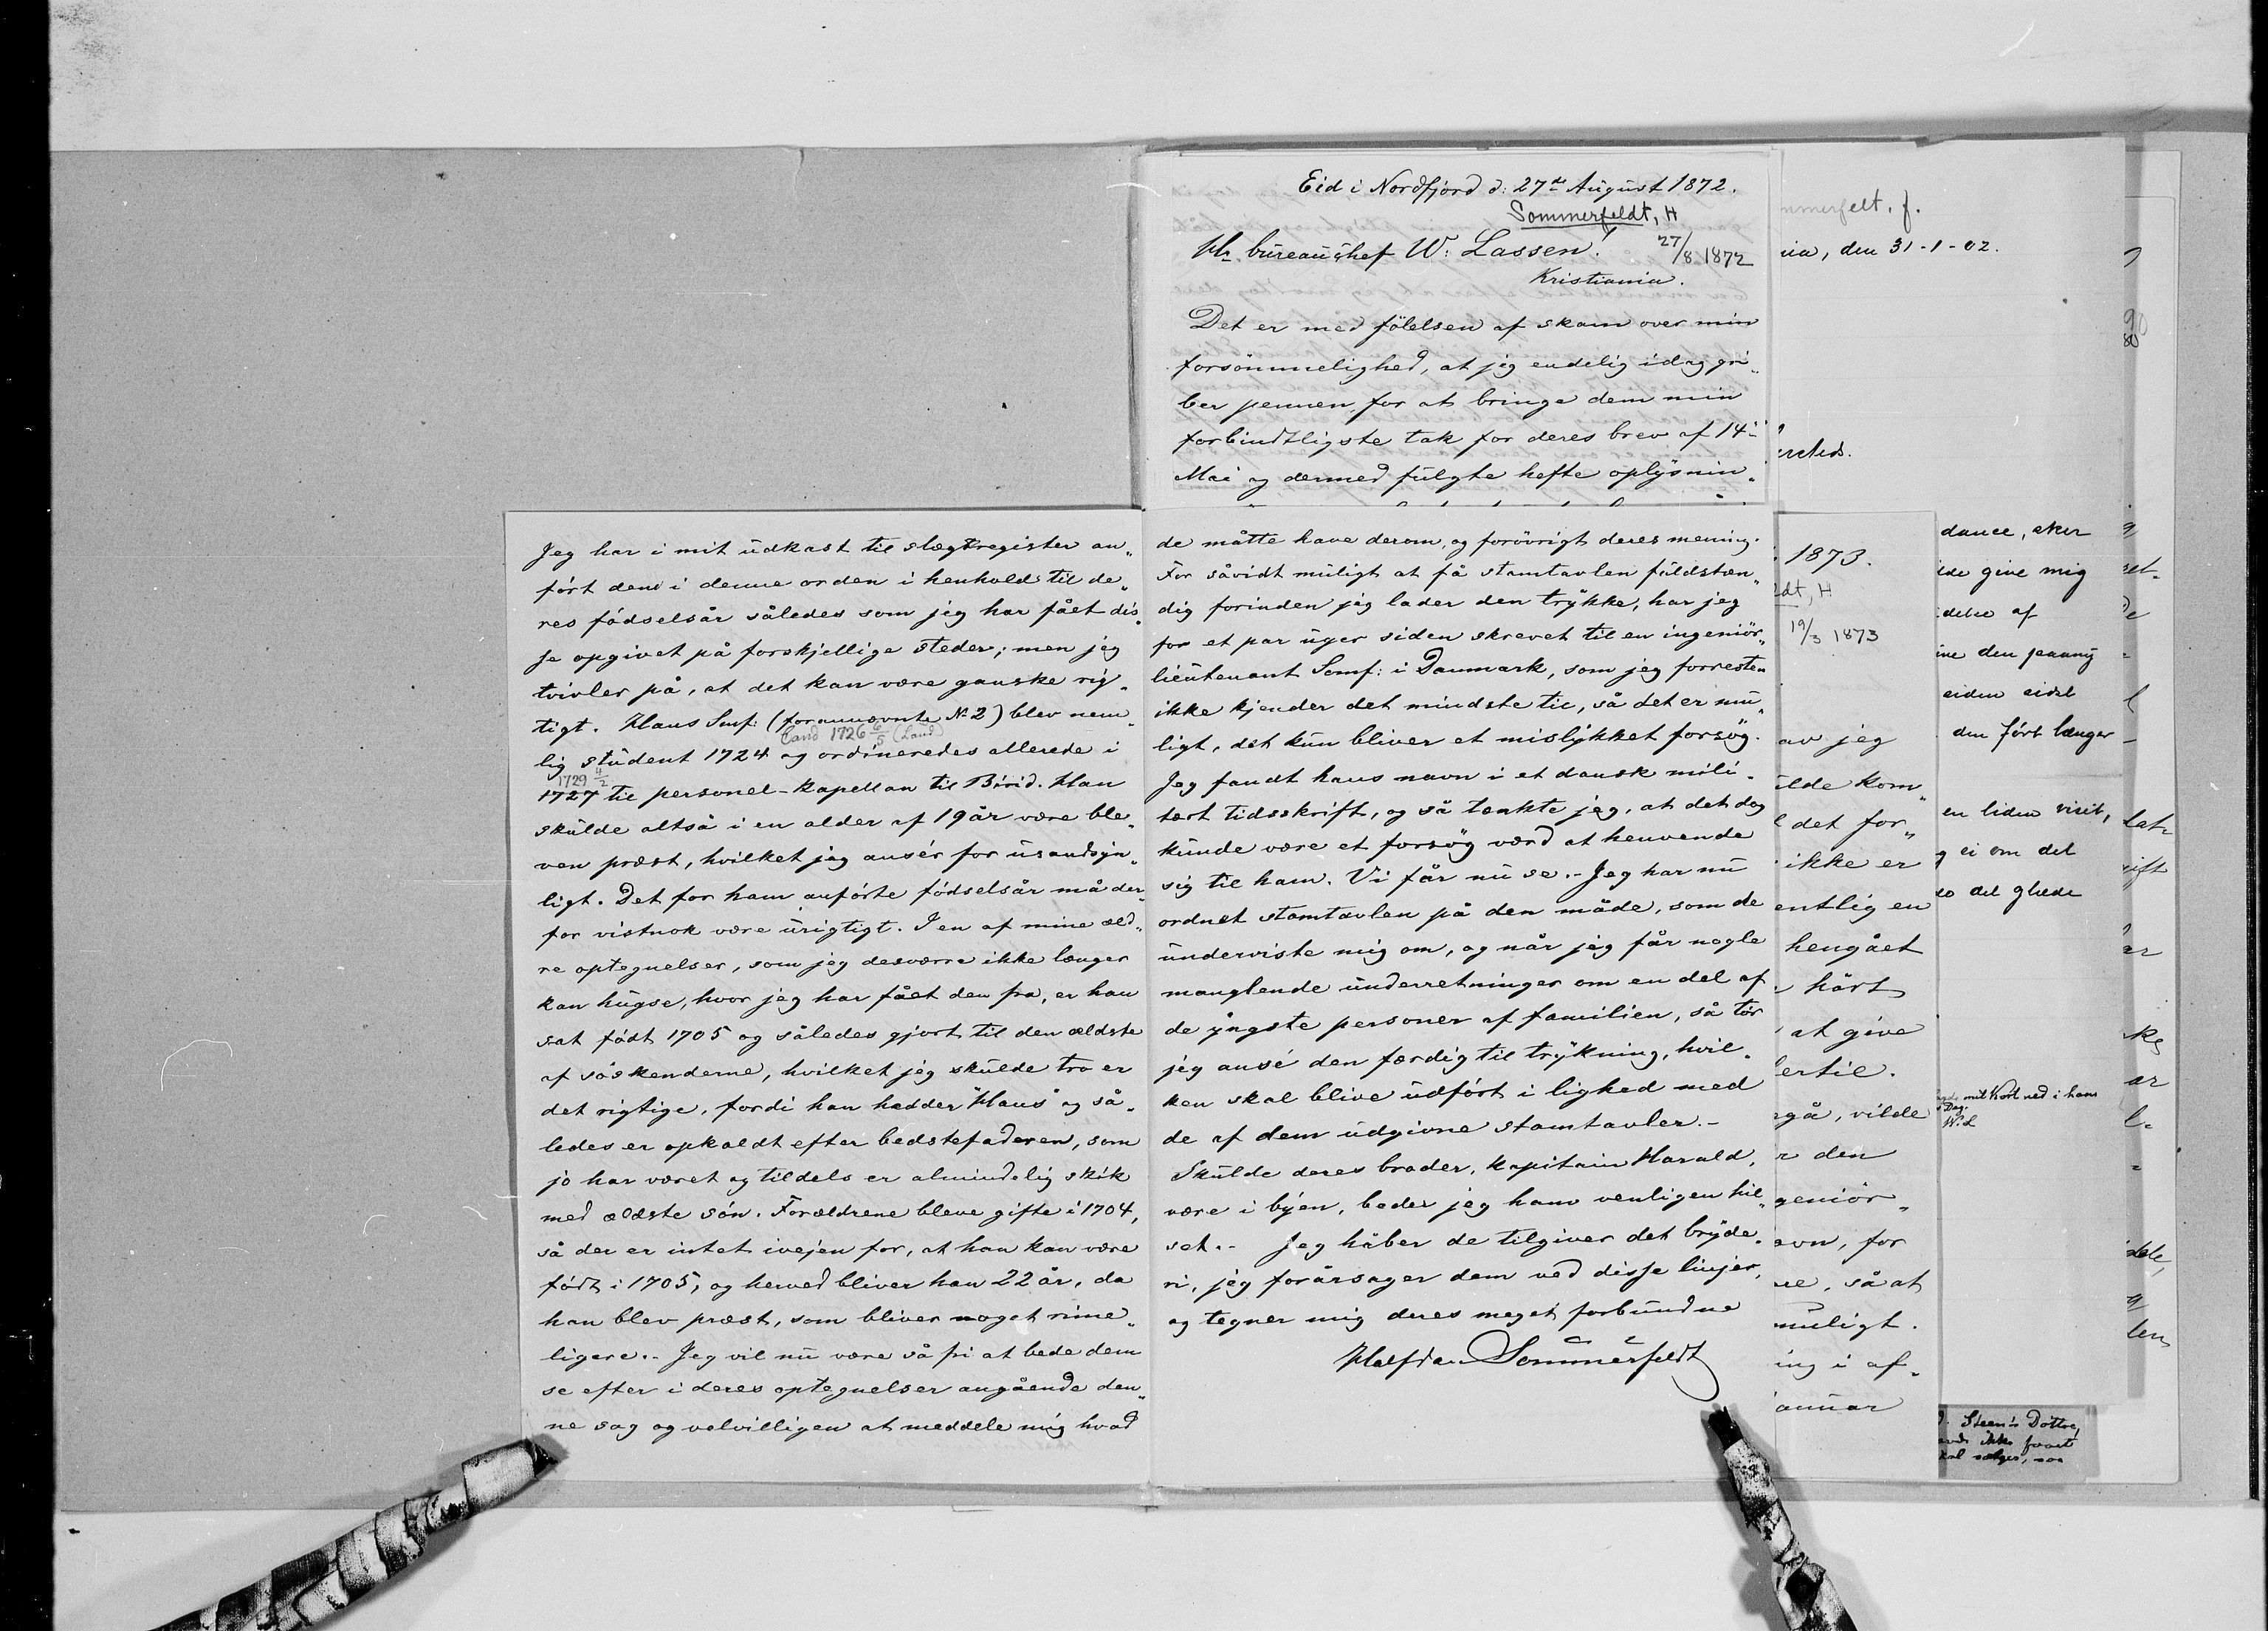 Eid i Nordfjord d: 27de August 1872.
Sommerfeldt, H
27/8 1872
Hr. bureauchef W: Lassen!
Kristiania.
Det er med fölelsen af skam over min
forsömmelighed, at jeg endelig idag gri„
ber pennen for at bringe dem min
forbindtligste tak for deres brev af 14de
Mai og dermed fulgte hefte oplysnin„
Jeg har i mit udkast til slægtregister an„
fört dem i denne orden i henhold til de„
res födselsår således som jeg har fået dis„
se opgivet på forskjellige steder; men jeg
tvivler på, at det kan være ganske rig„
tigt. Hans Smf: (forannævnte No 2) blev nem„
Cand 1726 6/5 (Laud)
lig student 1724 og ordineredes allerede i
1729 4/2
1727 til personel-kapellan til Birid. Han
skulde altså i en alder af 19 år være ble„
ven præst, hvilket jeg ansér for usandsyn„
ligt. Det for ham anförte födselsår må der„
for vistnok være urigtigt. I en af mine æld„
re optegnelser, som jeg desværre ikke længer
kan hugse, hvor jeg har fået den fra, er han
sat födt 1705 og således gjort til den ældste
af söskenderne, hvilket jeg skulde tro er
det rigtige, fordi han hedder "Hans" og så„
ledes er opkaldt efter bedstefaderen, som
jo har været og tildels er almindelig skik
med ældste sön. Forældrene bleve gifte i 1704,
så der er intet ivejen for, at han kan være
födt i 1705, og herved bliver han 22 år, da
han blev præst, som bliver noget rime„
ligere.- Jeg vil nu være så fri at bede dem
se efter i deres optegnelser angående den„
ne sag og velvilligen at meddele mig hvad
de måtte have derom, og forövrigt deres mening.
For såvidt muligt at få stamtavlen fuldstæn„
dig forinden jeg lader den trykke, har jeg
for et par uger siden skrevet til en ingeniör„
lieutenant Somf: i Danmark, som jeg forresten
ikke kjender det mindste til, så det er mu„
ligt, det kun bliver et mislykket forsög.
Jeg fandt hans navn i et dansk mili„
tært tidsskrift, og så tænkte jeg, at det dog
kunde være et forsög værd at henvende
sig til ham. Vi får nu se.- Jeg har nu
ordnet stamtavlen på den måde, som de
underviste mig om, og når jeg får nogle
manglende underretninger om en del af
de yngste personer af familien, så tör
jeg ansé den færdig til trykning, hvil„
ken skal blive udfört i lighed med
de af dem udgivne stamtavler.-
Skulde deres broder, kapitain Harald,
være i byen, beder jeg ham venligen hil„
set.- Jeg håber de tilgiver det bryde„
ri, jeg forårsager dem ved disse linjer,
og tegner mig deres meget forbundne
Halfdan Sommerfeldt
mmerfelt, f.
nia, den 31-1-02.
1873.
dt, H
19/3 1873
av jeg
ulde kom„
det for„
ikke er
entlig en
hengået
hört
at give
ertil.
gå, vilde
den
geniör„
avn, for
så at
muligt.
ing i af„
anuar
ide give mig
delse af
den fört længer
en liden visit,
ei om det
det glæde
mit Kort ned i hans
Dag.
W. L
Steen's Datter,
ikke faaet
sælges, saa